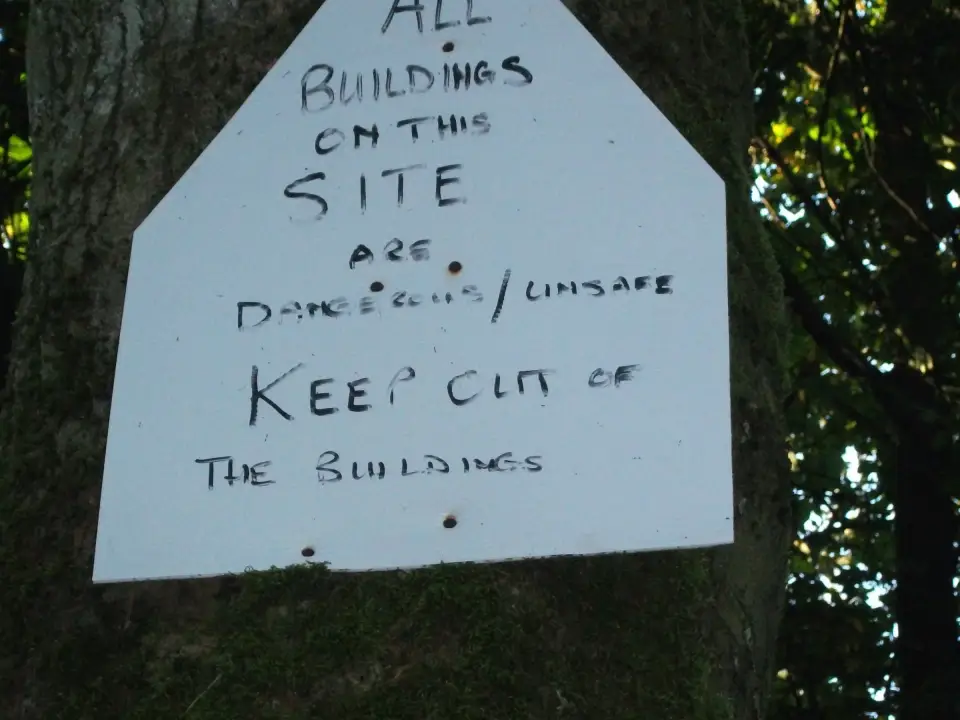 ALL
BUILDINGS
ON THIS
SITE
ARE
DANGEROUS/UNSAFE
KEEP OUT OF
THE BUILDINGS